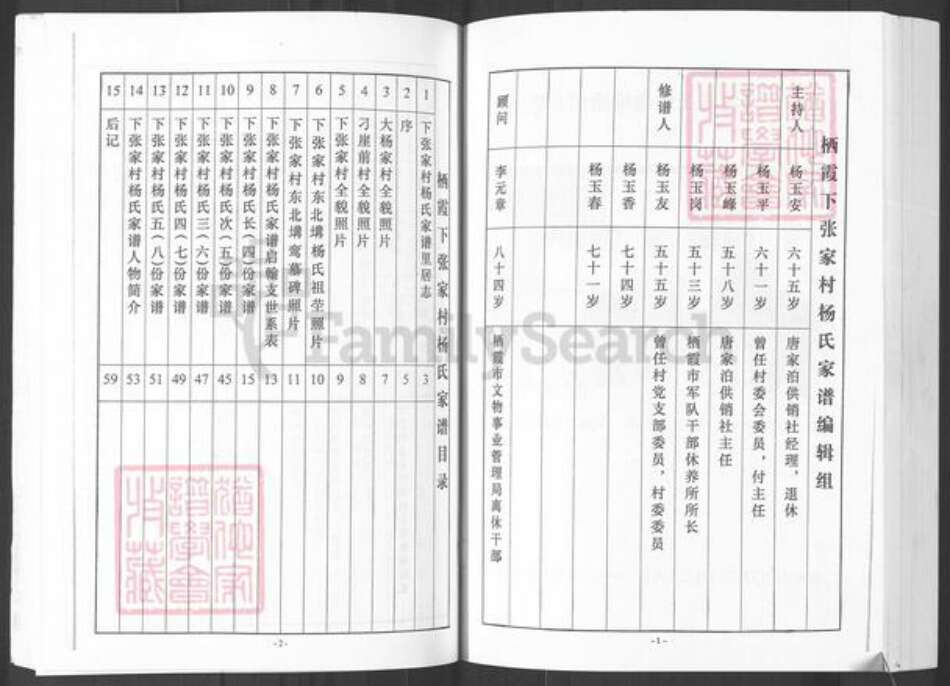 栖霞下张家村杨氏家谱编辑组
主持人 杨玉安 六十五岁 唐家泊供销社经理，退休
杨玉平 六十一岁 曾任村委会委员，付主任
杨玉峰 五十八岁 唐家泊供销社主任
杨玉岗 五十三岁 栖霞市军队干部休养所所长
修谱人 杨玉友 五十五岁 曾任村党支部委员，村委委员
杨玉香 七十四岁
杨玉春 七十一岁
顾问 李元章 八十四岁 栖霞市文物事业管理局离休干部
-1-
栖霞下张家村杨氏家谱目录
1 下张家村杨氏家谱里居志 3
2 序 5
3 大杨家村全貌照片 7
4 刁崖前村全貌照片 8
5 下张家村全貌照片 9
6 下张家村东北塂杨氏祖茔照片 10
7 下张家村东北塂鸾墓碑照片 11
8 下张家村杨氏家谱启翰支世系表 13
9 下张家村杨氏长（四）份家谱 15
10 下张家村杨氏次（五）份家谱 45
11 下张家村杨氏三（六）份家谱 47
12 下张家村杨氏四（七）份家谱 49
13 下张家村杨氏五（八）份家谱 51
14 下张家村杨氏家谱人物简介 53
15 后记 59
-2-
FamilySearch